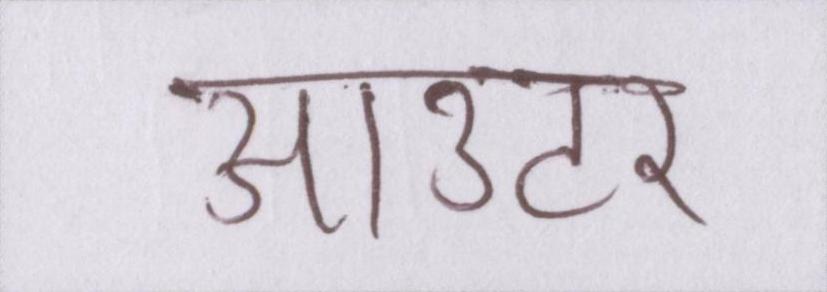 आउटर